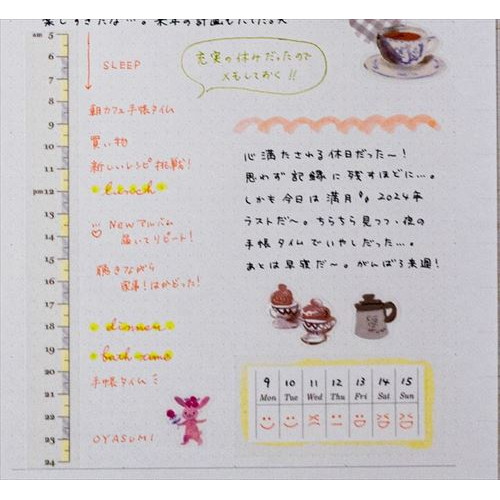 am 5
6
7
8
9
10
11
pm 12
13
14
15
16
17
18
19
20
21
22
23
24
SLEEP
朝カフェ手帳タイム
買い物
新しいレシピ挑戦!
lunch
Newアルバム
届いてリピート!
聴きながら
家事!はかどった!
dinner
bath time
手帳タイム
OYASUMI
充実の休みだったので
メモしておく!!
心満たされる休日だった〜!
思わず記録に残すほどに…。
しかも今日は満月 2024年
ラストだ〜。ちらちら見つつ、夜の
手帳タイムでいやしだった…。
あとは早寝だ〜。がんばろ来週!
9 10 11 12 13 14 15
Mon Tue Wed Thu Fri Sat Sun